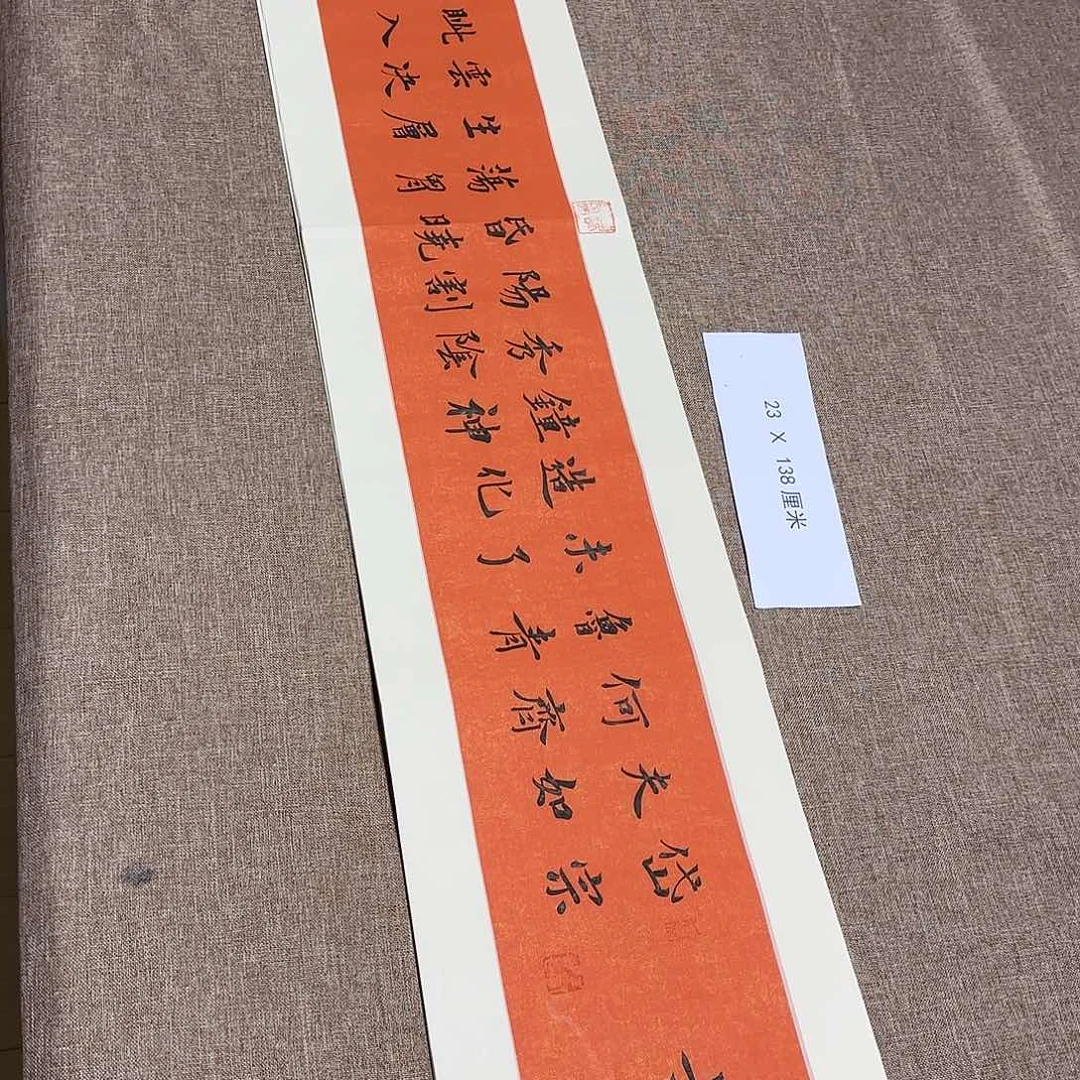 岱宗
夫如
何齊
魯青
未了
造化
鐘神
秀陰
陽割
昏曉
蕩胷
生層
雲決
眥入
23 X 138厘米